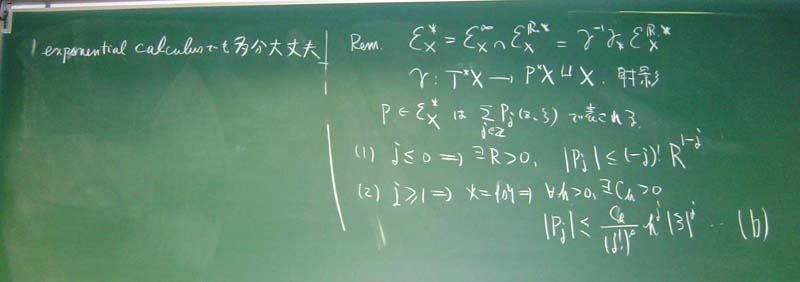 exponential calculus でも多分大丈夫
Rem. ℰ_X^* = ℰ_X^∞ ∩ ℰ_X^{ℝ,*} = γ^{-1}γ_* ℰ_X^{ℝ*}
γ : T*X → P*X ⊔ X. 射影
P ∈ ℰ_X^* は Σ_{j∈ℤ} P_j(z,ξ) で表される
(1) j ≤ 0 ⇒ ∃R > 0, |P_j| ≤ (-j)! R^{1-j}
(2) j ≥ 1 ⇒ * = {s} ⇒ ∀h > 0, ∃C_h > 0
|P_j| ≤ C_h/(j!)^s h^j |ξ|^j ... (b)